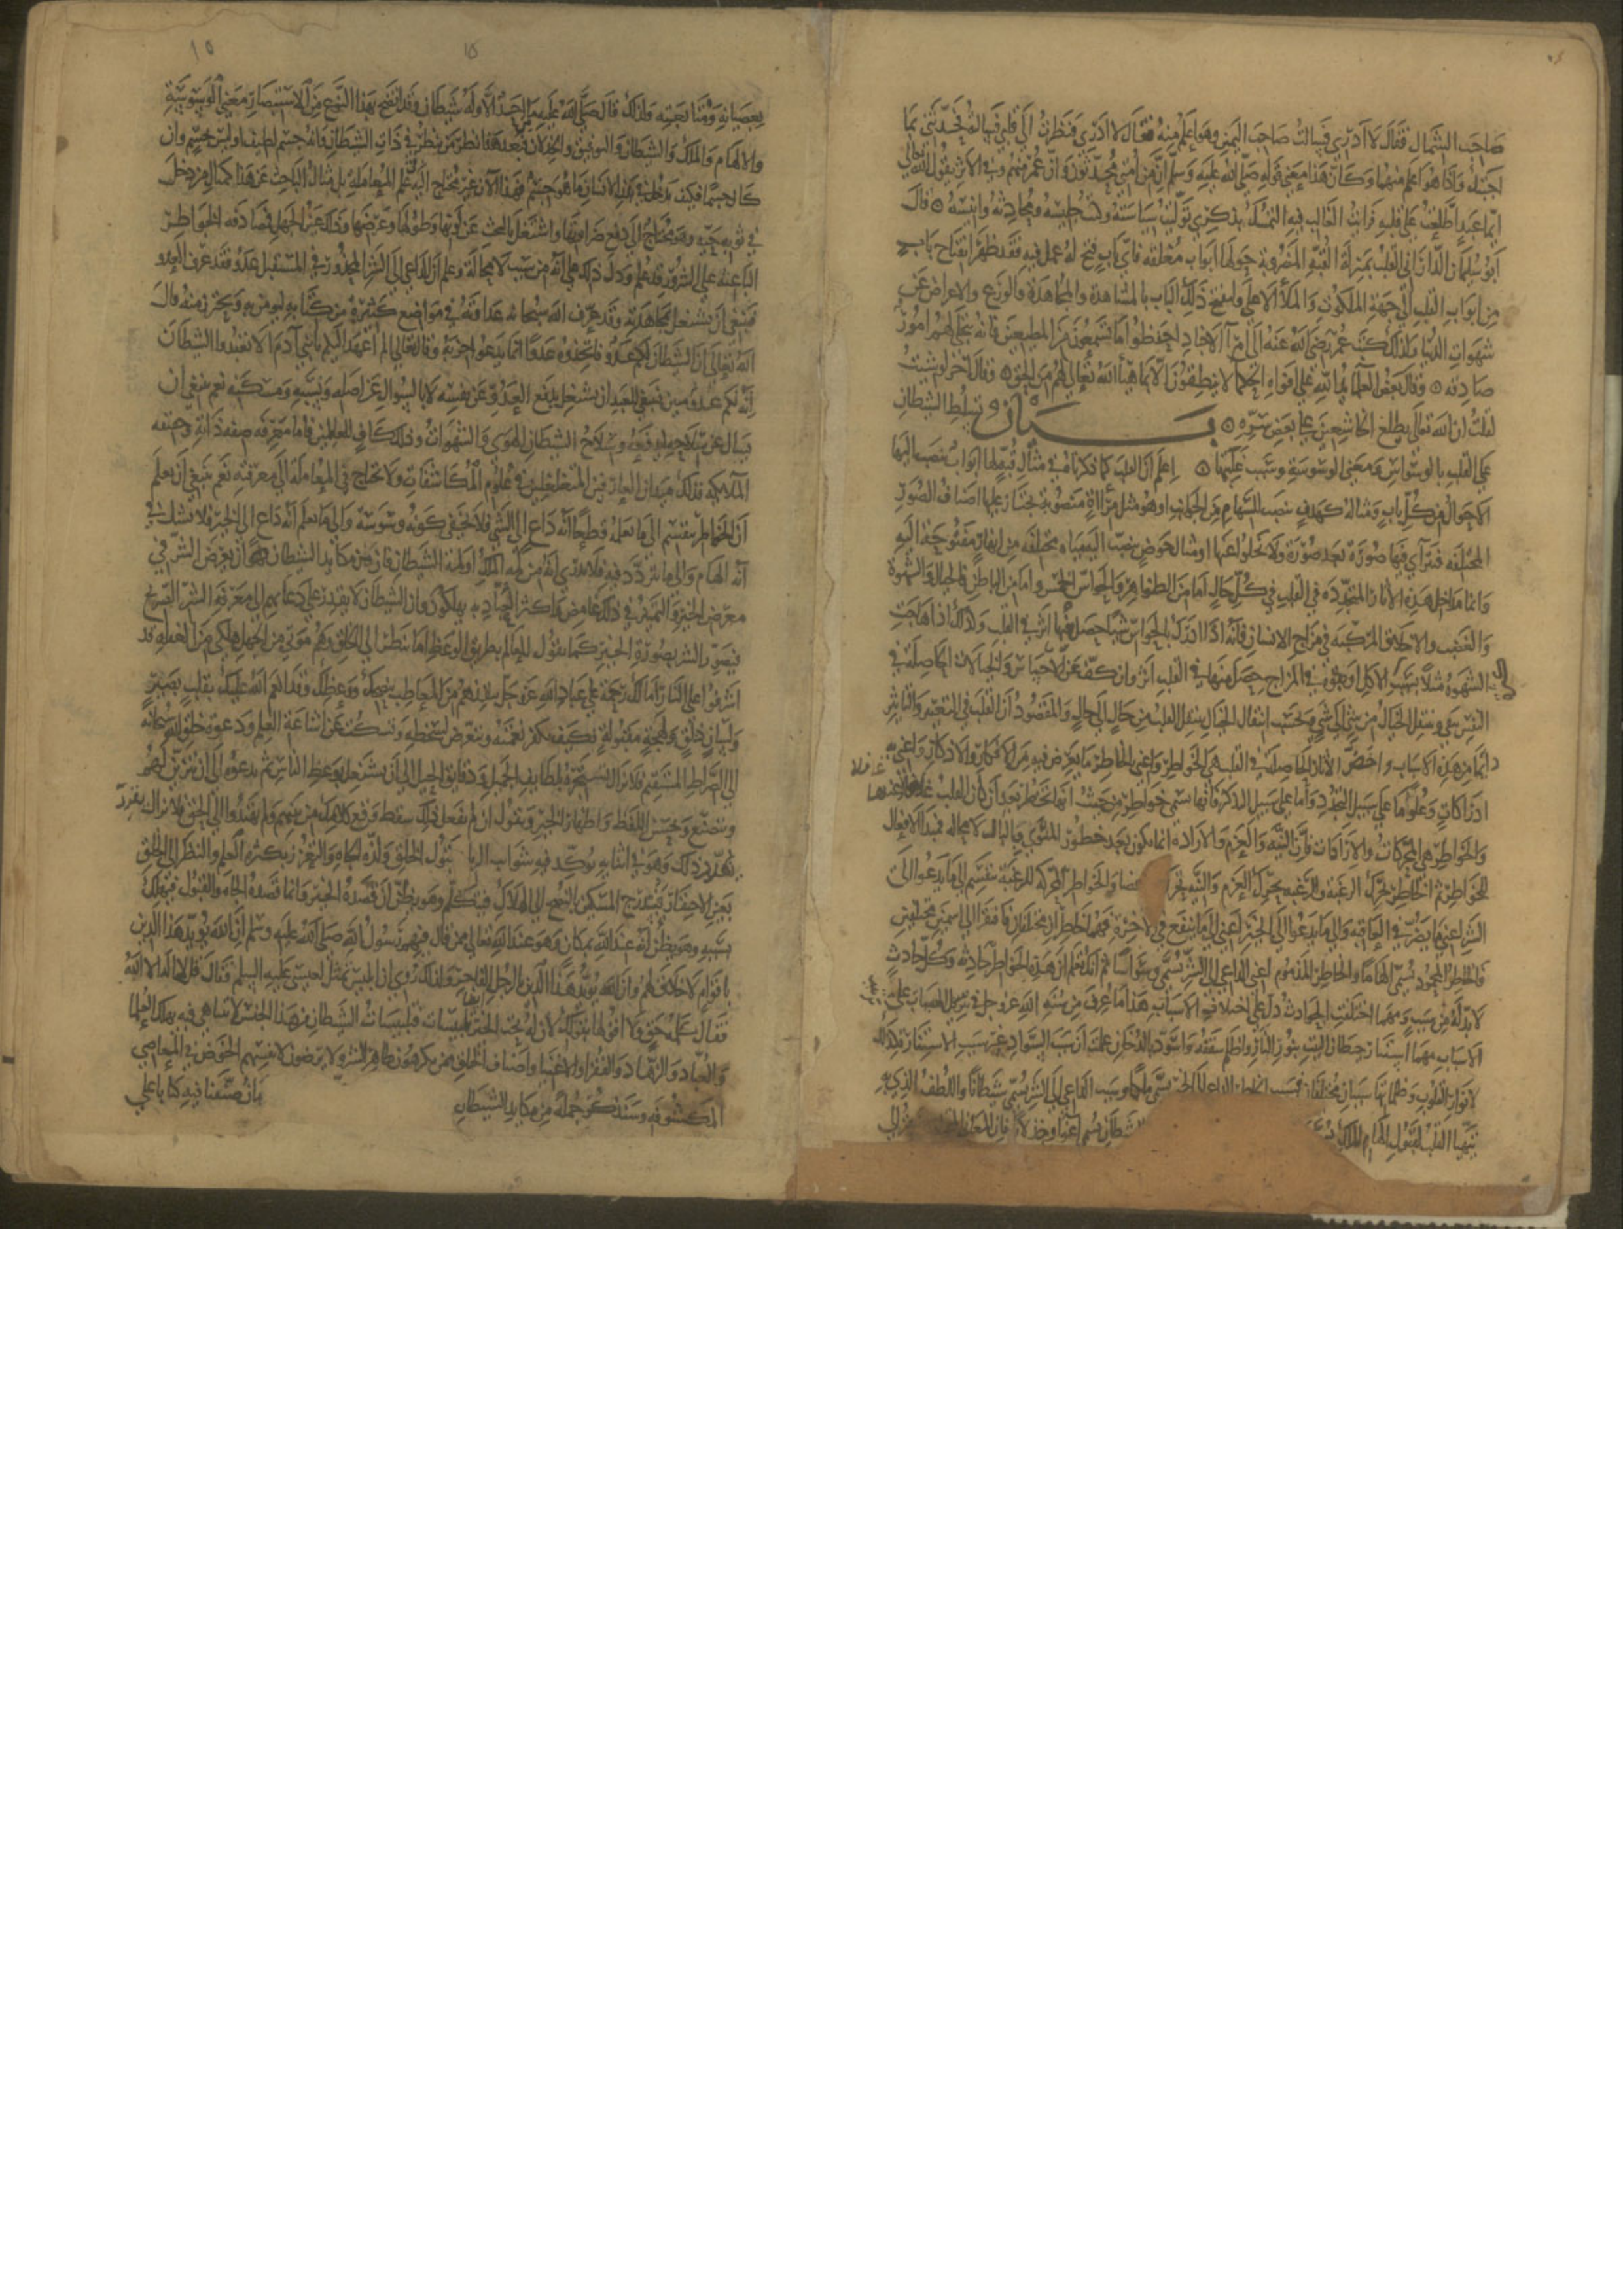 صاحب الشمال فقال لا ادري فسالت صاحب اليمين وهو اعلم منه فقال لا ادري فنظرت الى قلبي فسالته فحدثني بما
اجبتك فاذا هو اعلم منهما وكان هذا معنى قوله صلى الله عليه وسلم ان من امتي محدثون وان عمر منهم وفي الاثر يقول الله تعالى
ايما عبد اطلعت على قلبه فرايت الغالب فيه التمسك بذكري توليت سياسته وكنت جليسه ومحادثه وانيسه وقال
ابو سليمان الداراني القلب بمنزلة القبة المضروبة حولها ابواب مغلقة فاي باب فتح له عمل فيه فقد ظهر انفتاح باب
من ابواب القلب الى جهة الملكوت والملا الاعلى وينفتح ذلك الباب بالمشاهدة والمجاهدة والورع والاعراض عن
شهوات الدنيا ولذلك كتب عمر رضي الله عنه الى امرآ الاجناد احفظوا ما تسمعون من المطيعين فانه ينجلي لهم امور
صادقه وقال بعض العلماء يد الله على افواه الحكما لا ينطقون الا بما هيأ الله تعالى لهم من الحق وقال اخر لو شئت
لقلت ان الله تعالى يطلع الخاشعين على بعض سره بيان تسلط الشيطان
على القلب بالوسواس ومعنى الوسوسة وسبب غلبتها اعلم ان القلب كما ذكرناه في مثال قبة لها ابواب تنصب اليها
الاحوال من كل باب ومثاله كهدف تنصب السهام من الجوانب او هو مثل مرآة منصوبة تجتاز عليها اصناف الصور
المختلفه فتترآى فيها صورة بعد صورة ولا تخلوا عنها او مثال حوض ينصب اليه مياه مختلفه من انهار مفتوحة اليه
وانما مداخل هذه الاثار المتجدده في القلب في كل حال اما من الظواهر فالحواس الخمس واما من الباطن فالخيال والشهوة
والغضب والاخلاق المركبه في مزاج الانسان فانه اذا ادرك بالحواس شيا حصل منها اثر في القلب وكذلك اذا هاجت
الشهوة مثلا بسبب الاكل او بقوة في المزاج حصل منها في القلب اثر وان كف عن الاحساس والخيالات الحاصلة في
النفس تبقى وينتقل الخيال من شي الى شي وبحسب انتقال الخيال ينتقل القلب من حال الى حال والمقصود ان القلب في التغير والتاثر
دائما من هذه الاسباب واخص الاثار الحاصلة في القلب هي الخواطر واعني بالخواطر ما يعرض فيه من الافكار والاذكار واعني به
ادراكات وعلوما على سبيل التجدد واما على سبيل التذكر فانها تسمى خواطر من حيث انها تخطر بعد ان كان القلب غافلا عنها
والخواطر هي المحركات والارادات فان النية والعزم والارادة انما تكون بعد خطور المنوي بالبال لا محاله فمبدا الافعال
الخواطر ثم الخاطر يحرك الرغبة والرغبة يحرك العزم والنية يحرك والخواطر المحركة للرغبة تنقسم الى ما يدعوا الى
الشر اعني ما يضر في العاقبه والى ما يدعوا الى الخير اعني الى ما ينفع في الاخرة فهما خاطران مختلفان فافتقرا الى اسمين مختلفين
فالخاطر المحمود يسمى الهاما والخاطر المذموم اعني الداعي الى الشر يسمى وسواسا ثم انك تعلم ان هذه الخواطر حادثه وكل حادث
لا بد له من سبب ومهما اختلفت الحوادث دل على اختلاف الاسباب هذا ما عرف من سنة الله عز وجل في ترتيب المسببات على
الاسباب مهما استنار حيطان البيت بنور النار واظلم سقفه واسود بالدخان علمت ان سبب السواد غير سبب الاستنارة كذلك
لانوار القلوب وظلماتها سببان مختلفان فسبب الخاطر الداعي الى الخير يسمى ملكا وسبب الداعي الى الشر يسمى شيطانا واللطف الذي به
يتهيا القلب لقبول الهام الملك الشيطان يسمى اغوا وخذلانا فان المعاني
بعصيانه ومتابعته ولذلك قال صلى الله عليه ما من احد الا وله شيطان وقد اتضح بهذا النوع من الاستبصار معنى الوسوسة
والالهام والملك والشيطان والتوفيق والخذلان فبعد هذا نظر من ينظر في ذات الشيطان فانه جسم لطيف او ليس بجسم وان
كان جسما فكيف يدخل في بدن الانسان ما هو جسم فهذا الان غير محتاج اليه في علم المعاملة بل مثال الباحث عن هذا كمثال من دخل
في ثوبه حية وهو محتاج الى دفع ضراوتها واشتغل بالبحث عن لونها وطولها وعرضها وذلك عين الجهل فمصادفه الخواطر
الباعثة على الشر قد علم ودل ذلك على انه من سبب لا محالة وعلم ان الداعي الى الشر المحذور في المستقبل عدو فقد عرف العدو
فينبغي ان يشتغل بمجاهدته وقد عرف الله سبحانه عداوته في مواضع كثيرة من كتابه ليومن به ويحترز منه قال
الله تعالى ان الشيطان لكم عدو فاتخذوه عدوا انما يدعو حزبه وقال تعالى الم اعهد اليكم يا بني آدم ان لا تعبدوا الشيطان
انه لكم عدو مبين فينبغي للعبد ان يشتغل بدفع العدو عن نفسه لا بالسوال عن اصله ونسبه ومسكنه نعم ينبغي ان
يسال عن سلاحه ليدفعه وسلاح الشيطان الهوى والشهوات وذلك كاف للعالمين فاما معرفة صفه ذاته وحقيقه
الملائكه فذلك ميدان العارفين المتغلغلين في علوم المكاشفات ولا تحتاج في المعامله الى معرفته نعم ينبغي ان يعلم
ان الخواطر تنقسم الى ما يعلم قطعا انه داع الى الشر فلا يخفى كونه وسوسة والى ما يعلم انه داع الى الخير فلا تشك في
انه الهام والى ما يتردد فيه فلا يدري انه من لمه الملك او لمه الشيطان فان من مكايد الشيطان ان يعرض الشر في
معرض الخير والتمييز في ذلك غامض واكثر العباد به يهلكون فان الشيطان لا يقدر على دعائهم الى معرفة الشر الصريح
فيصور الشر بصورة الخير كما يقول للعالم بطريق الوعظ اما تنظر الى الخلق وهم موتى من الجهل هلكى من الغفله قد
اشرفوا على النار اما لك رحمة على عباد الله عز وجل من المعاطب بنصحك ووعظك وقد انعم الله عليك بقلب بصير
ولسان ذلق ولهجة مقبولة فكيف تكفر نعمته وتتعرض لسخطه وتسكت عن اشاعة العلم ودعوة خلق الله سبحانه
الى الصراط المستقيم فلا يزال يستجره بلطايف الحيل ودقايق الحيل الى ان يشتغل بوعظ الناس ثم يدعوه الى ان يتزين لهم
ويتصنع بتحسين اللفظ واظهار الخير ويقول ان لم تفعل ذلك سقط وقع كلامك من قلوبهم ولم يهتدوا الى الحق ولا يزال يقرر
ذلك وهو في اثنايه يوكد فيه شواب الريا وقبول الخلق ولذه الجاه والتعزز بكثرة العلم والنظر الى الخلق
بعين الاحتقار فيستدرج المسكين بالنصح الى الهلاك فيتكلم وهو يظن ان قصده الخير وانما قصده الجاه والقبول فيهلك
بسببه وهو يظن انه عند الله بمكان وهو عند الله تعالى ممن قال فيهم رسول الله صلى الله عليه وسلم ان الله يويد هذا الدين
باقوام لا خلاق لهم وان الله يويد هذا الدين بالرجل الفاجر ولذلك روي ان ابليس تمثل لعيسى عليه السلم فقال قل لا اله الا الله
فقال كلمة حق ولا اقولها بقولك لان له تحت الخير تلبيسات فتلبيسات الشيطان من هذا الجنس لا تتناهى فيه يهلك العلما
والعباد والزهاد والفقرا والاغنيا واصناف الخلق ممن يكرهون ظاهر الشر ولا يرضون لانفسهم الخوض في المعاصي
المكشوفه وسنذكر جمله من مكايد الشيطان بان صنفنا فيه كتابا على